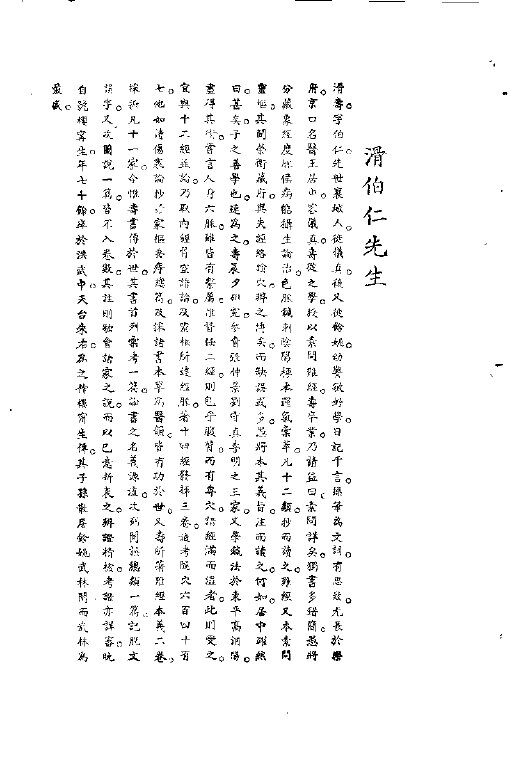 滑伯仁先生
滑壽字伯仁。先世襄城人。徙儀真。後又徙餘姚。幼警敏好學。日記千言。操筆為文詞。有思致。尤長於樂
府。京口名醫王居中客儀真。壽從之學。授以素問難經。壽卒業。乃請益曰。素問詳矣。獨書多錯簡。愚將
分藏象經度脈候病能攝生論治色脈鍼刺陰陽標本運氣彙萃凡十二類。抄而讀之。難經又本素問
靈樞。其間榮衛藏府與夫經絡腧穴。辨之博矣。而缺誤或多。愚將本其義旨。注而讀之。何如。居中躍然
曰。甚矣。子之善學也。速為之。壽晨夕研究。參會張仲景劉守真李明之三家。又學鍼法於東平高洞陽。
盡得其術。嘗言人身六脈。雖皆有繫屬。惟督任二經。則包乎腹背。而有專穴。諸經滿而溢者。此則受之。
宜與十二經並論。乃取內經骨空諸論及靈樞所述經脈。著十四經發揮三卷。通考隧穴六百四十有
七。他如讀傷寒論抄診家樞要痔瘻篇及採諸書本草為醫韻。皆有功於世。又壽所著難經本義二卷。
採祈凡十一家。今惟壽書傳於世。其書首列彙考一篇。論書之名義源流。次列闕誤總類一篇。記脫文
誤字。又次圖說一篇。皆不入卷數。其註則融會諸家之說。而以己意折衷之。辨證精核。考證亦詳審。晚
自號攖寧生。年七十餘。卒於洪武中。天台朱右為之傳。其子孫散居餘姚武林間。而武林為
最盛。